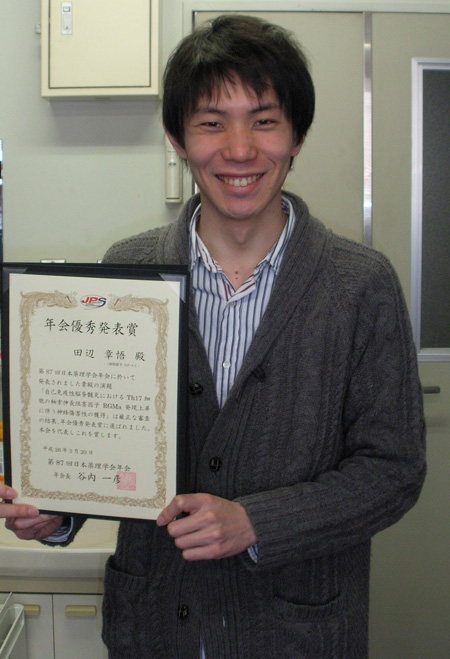 JPS
年会優秀発表賞
田辺 章悟 殿
第87回日本薬理学会年会に於いて
発表されました貴殿の演題
「自己免疫性脳脊髄炎における Th17 細
胞の軸索伸長阻害因子 RGMa 発現上昇
に伴う神経傷害性の獲得」は厳正な審査
の結果、年会優秀発表賞に選ばれました。
本会を代表しこれを賞します。
平成 26 年 3 月 20 日
第87回日本薬理学会年会
年会長 谷内 一彦